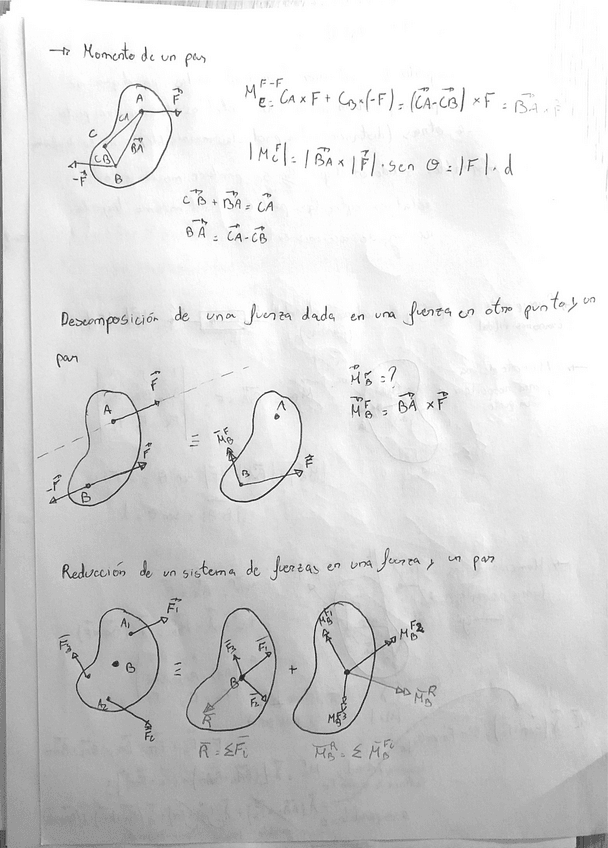 → Momento de un par
A
F
CA
C
BA
CB
-F
B
M_C^{F-F} = CA x F + CB x (-F) = (CA - CB) x F = BA x F
|M_C^F| = |BA x |F| · sen θ = |F| · d
CB + BA = CA
BA = CA - CB
Descomposición de una fuerza dada en una fuerza en otro punto y un
par
A
F
F
-F
B
≡
A
M_B^F
B
F
M_B^F = ?
M_B^F = BA x F
Reducción de un sistema de fuerzas en una fuerza y un par
A1
F1
F3
B
A2
≡
F3
F1
B
F2
R
R = ΣFi
+
M_B^{F1}
M_B^{F2}
M_B^{F3}
M_B^R
M_B^R = Σ M_B^{Fi}